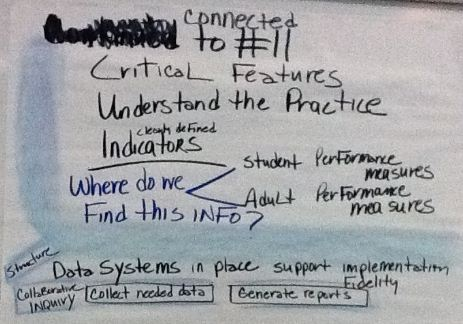 connected
to #11
Critical Features
Understand the Practice
clearly defined
Indicators
Where do we
Find this INFO?
Student Performance
measures
Adult Performance
measures
Structure
Data Systems in place support implementation
Fidelity
Collaborative
INQUIRY
Collect needed data
Generate reports